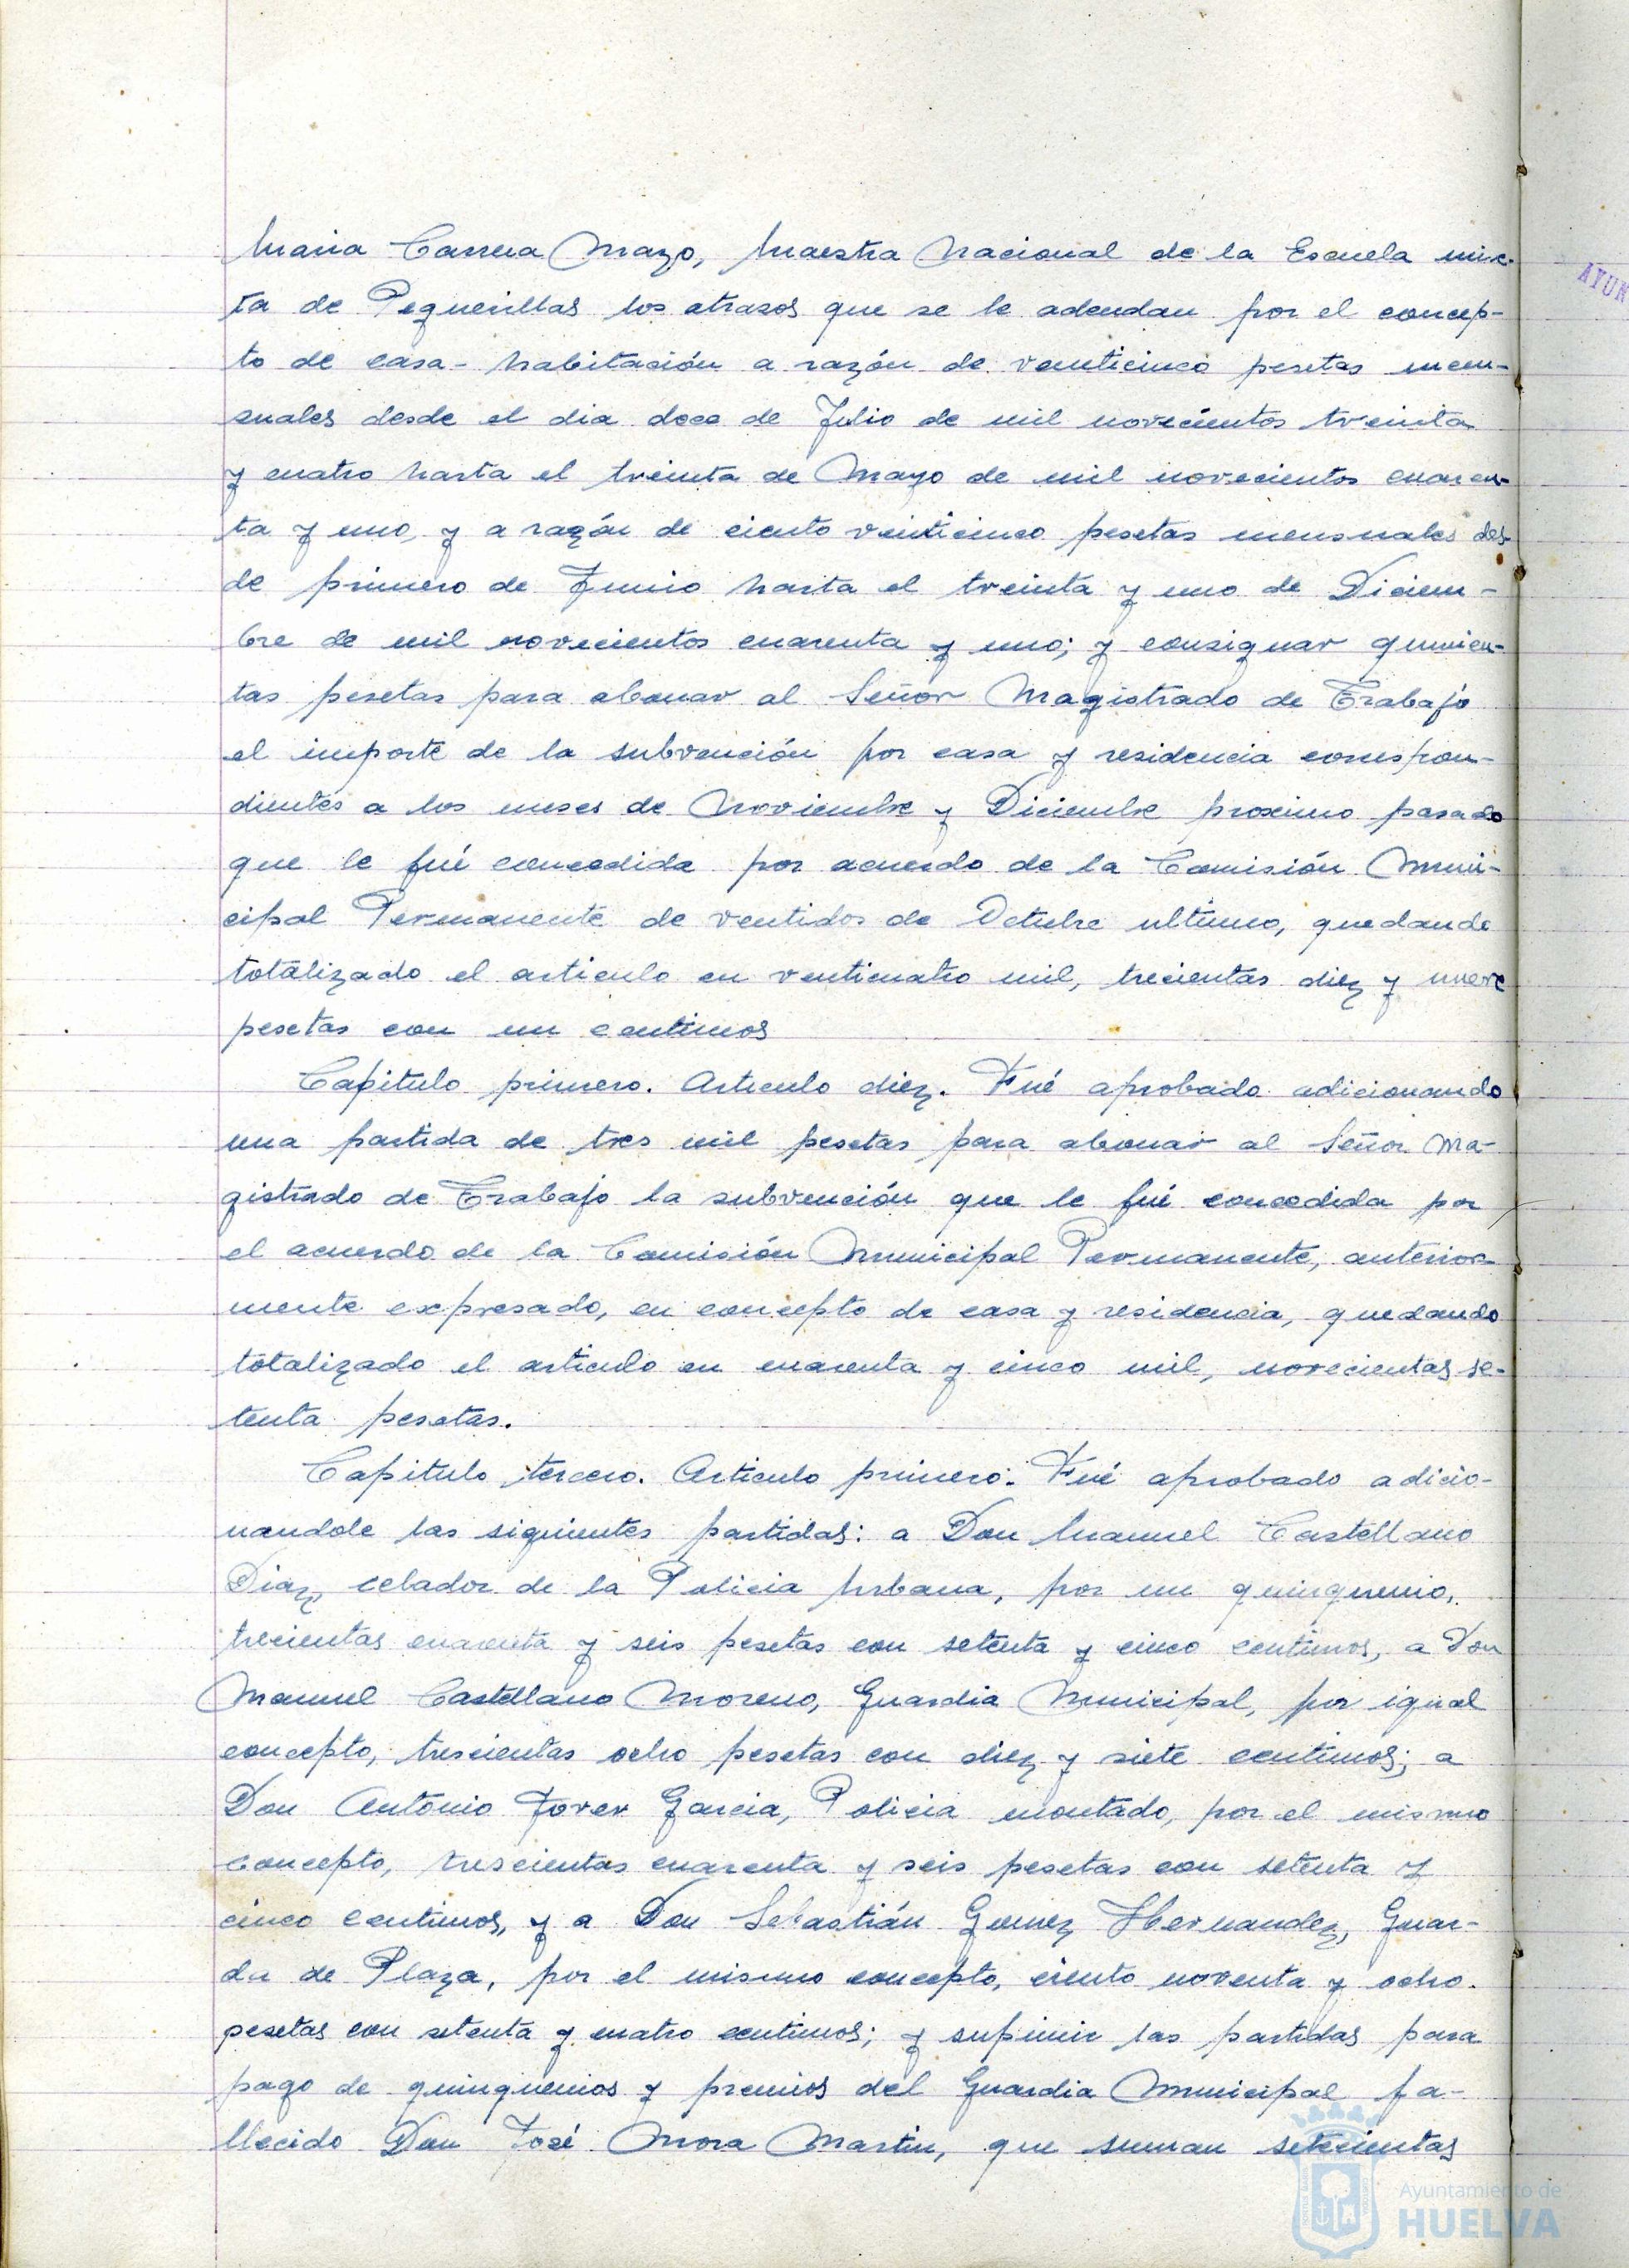 Maria Carrera Mazo, Maestra Nacional de la Escuela mix-
ta de Peguerillas los atrasos que se le adeudan por el concep-
to de casa-habitación a razón de veinticinco pesetas men-
suales desde el dia doce de Julio de mil novecientos treinta
y cuatro hasta el treinta de Mayo de mil novecientos cuaren-
ta y uno, y a razón de ciento veinticinco pesetas mensuales des-
de primero de Junio hasta el treinta y uno de Diciem-
bre de mil novecientos cuarenta y uno; y consignar quinien-
tas pesetas para abonar al Señor Magistrado de Trabajo
el importe de la subvención por casa y residencia correspon-
dientes a los meses de Noviembre y Diciembre proximo pasado
que le fué concedida por acuerdo de la Comisión Muni-
cipal Permanente de ventidos de Octubre ultimo, quedando
totalizado el articulo en venticuatro mil, trecientas diez y nueve
pesetas con un centimos
Capitulo primero. Articulo diez. Fué aprobado adicionando
una partida de tres mil pesetas para abonar al Señor Ma-
gistrado de Trabajo la subvención que le fué concedida por
el acuerdo de la Comisión Municipal Permanente, anterior-
mente expresado, en concepto de casa y residencia, quedando
totalizado el articulo en cuarenta y cinco mil, novecientas se-
tenta pesetas.
Capitulo tercero. Articulo primero. Fué aprobado adicio-
nandole las siguientes partidas: a Don Manuel Castellano
Diaz, celador de la Policia Urbana, por un quinquenio,
trecientas cuarenta y seis pesetas con setenta y cinco centimos, a Don
Manuel Castellano Moreno, Guardia Municipal, por igual
concepto, trescientas ocho pesetas con diez y siete centimos; a
Don Antonio Jover Garcia, Policia montado, por el mismo
concepto, trescientas cuarenta y seis pesetas con setenta y
cinco centimos, y a Don Sebastián Gomez Hernandez, Guar-
da de Plaza, por el mismo concepto, ciento noventa y ocho
pesetas con setenta y cuatro centimos; y supimir las partidas para
pago de quinquenios y premios del Guardia Municipal fa-
llecido Don José Mora Martin, que suman setecientas
AYUN
Ayuntamiento de
HUELVA